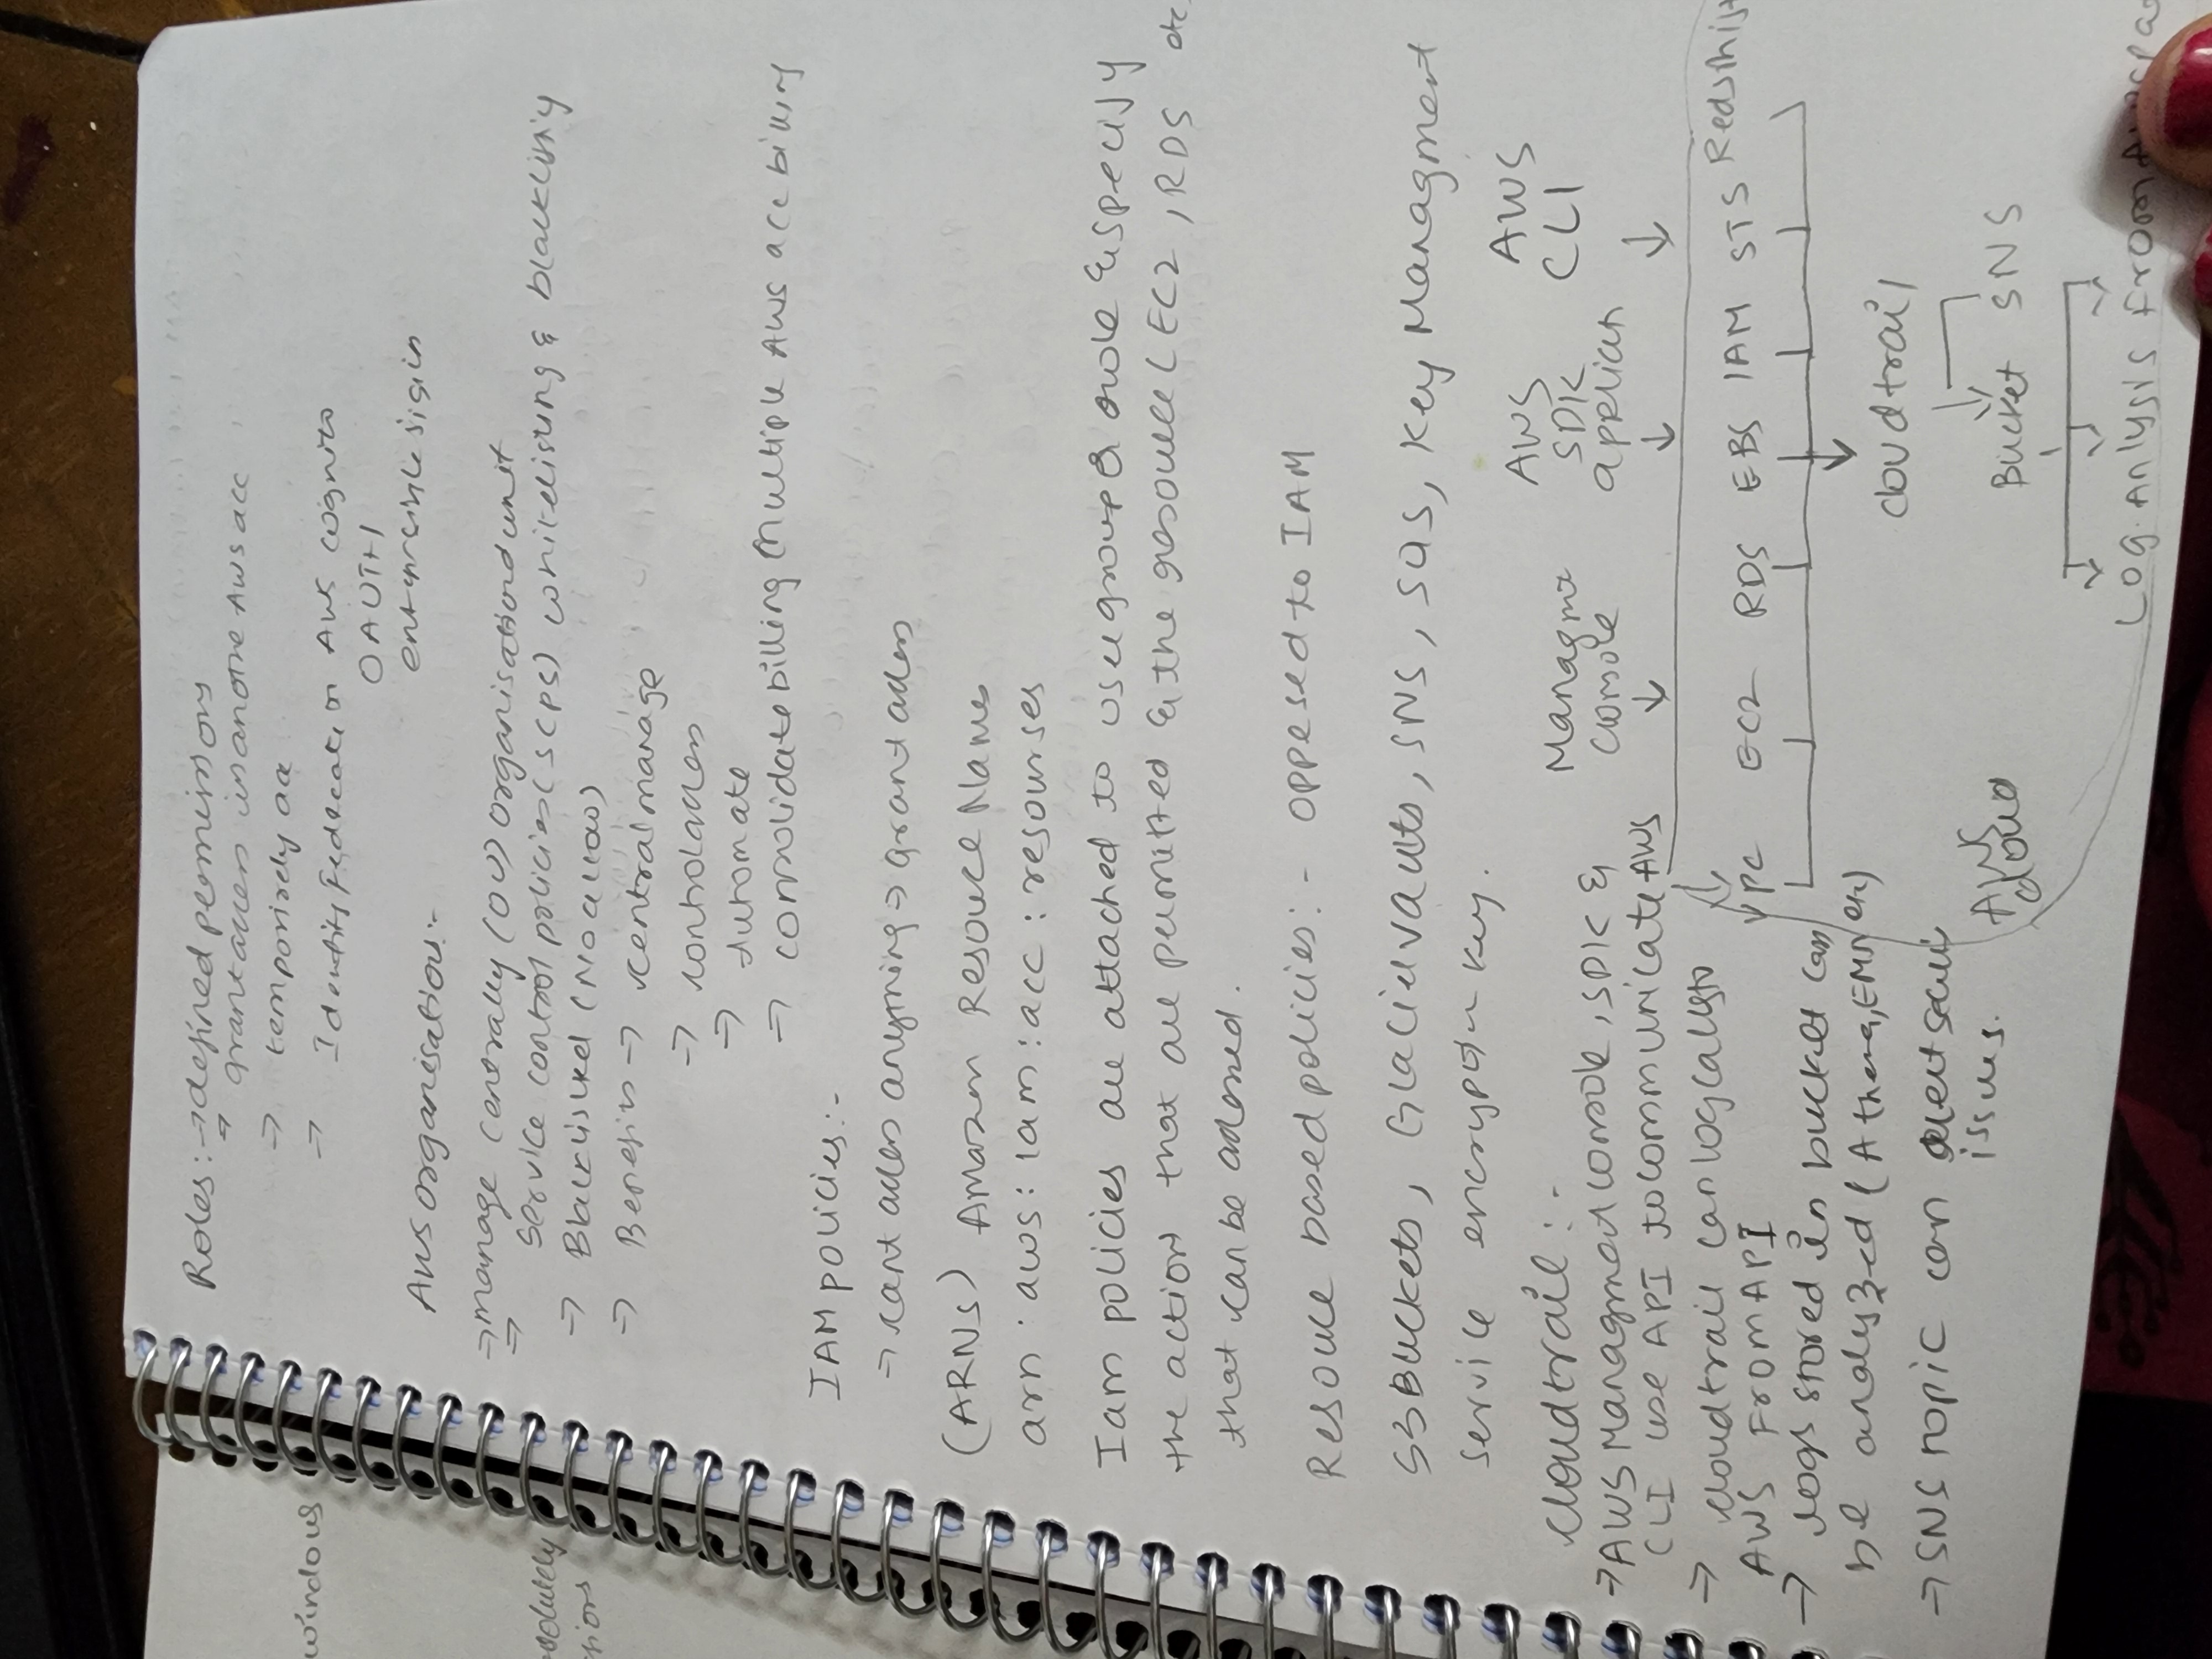 windows
Roles :- → defined permissions
→ grant access in anothe AWS acc
→ temporirely acc
→ Identity Federation AWS cognito
OAUTH
AWS organisation :-
→ manage centrally (OU) organisational unit
→ service control policies (SCPS) whitelisting & blacklisting
→ Blacklisted (No allow)
→ Benefits → central manage
→ control access
→ Automate
→ consolidate billing Multiple AWS acc billing
IAM policies :-
→ cant access anything → grant access
(ARNs) Amazon Resouce Names
arn : aws : iam : acc : resourses
Iam policies are attached to user group & role & specify
the actions that are permitted & the resource (EC2, RDS etc
that can be accessed.
Resouce based policies :- oppesed to IAM
S3 Buckets, Glacier vaults, SNS, SQS, Key Managment
service encryption key.
cloudtrail :-
→ AWS Managment console, SDK &
CLI use API to communicate AWS
→ cloudtrail can log calls to
AWS From API
→ logs stored in bucket can
be analyzed (Athena, EMR etc)
→ SNS topic can alert
issues.
Managmt
console
AWS
SDK
AWS
CLI
VPC EC2 RDS EBS IAM STS Redshift
cloudtrail
Bucket SNS
AWS
cloud
Log Anlysis From